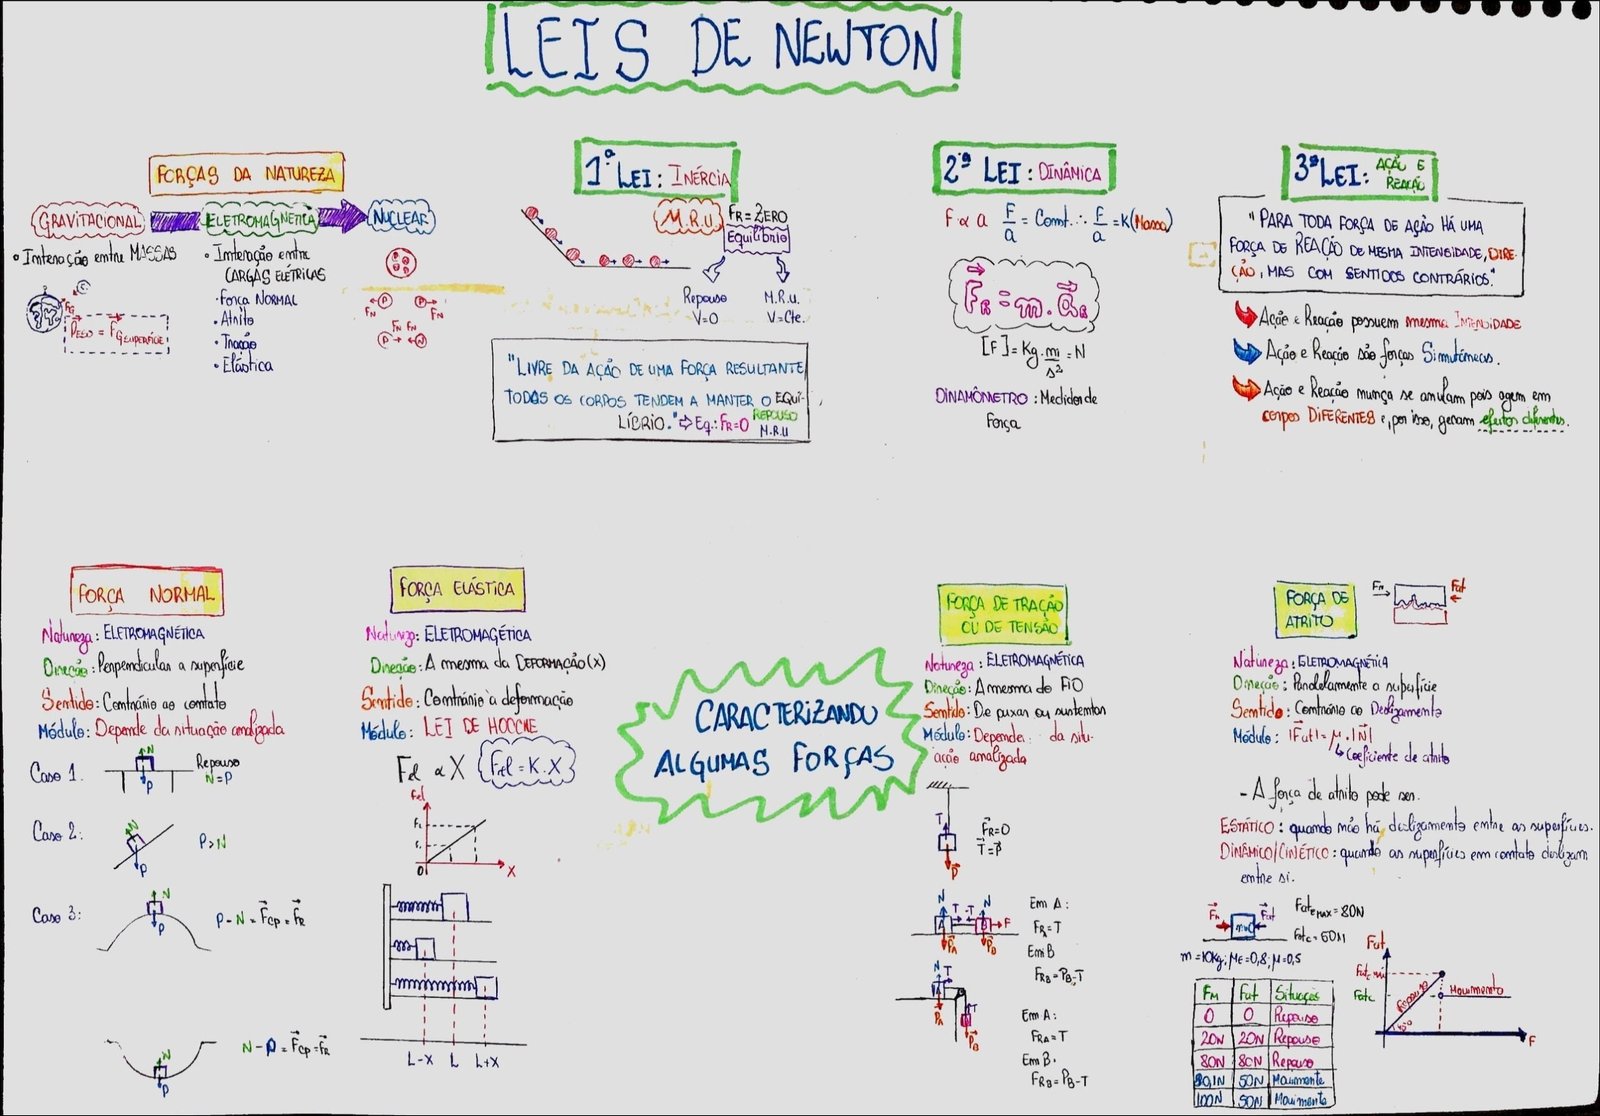 LEIS DE NEWTON
FORÇAS DA NATUREZA
GRAVITACIONAL
ELETROMAGNÉTICA
NUCLEAR
• Interação entre MASSAS
FG
PESO = FG SUPERFÍCIE
• Interação entre
CARGAS ELÉTRICAS
• Força NORMAL
• Atrito
• Tração
• Elástica
P P
FN FN
FN FN
P N
1ª LEI: INÉRCIA
M.R.U
FR = ZERO
Equilíbrio
Repouso
V=0
M.R.U.
V=Cte.
"LIVRE DA AÇÃO DE UMA FORÇA RESULTANTE
TODOS OS CORPOS TENDEM A MANTER O EQUI-
LÍBRIO." ⇨ Eq.: FR=0 REPOUSO
M.R.U
2ª LEI: DINÂMICA
F ∝ a F/a = Const. ∴ F/a = K (Massa)
FR = m.aR
[F] = Kg.m/s² = N
DINAMÔMETRO: Medidor de
Força
3ª LEI: AÇÃO E
REAÇÃO
"PARA TODA FORÇA DE AÇÃO HÁ UMA
FORÇA DE REAÇÃO DE MESMA INTENSIDADE, DIRE-
ÇÃO, MAS COM SENTIDOS CONTRÁRIOS."
Ação e Reação possuem mesma INTENSIDADE
Ação e Reação são forças Simutâneas.
Ação e Reação nunca se anulam pois agem em
corpos DIFERENTES e, por isso, geram efeitos diferentes.
FORÇA NORMAL
Natureza: ELETROMAGNÉTICA
Direção: Perpendicular a superfície
Sentido: Contrário ao contato
Módulo: Depende da situação analizada
Caso 1:
N
P
Repouso
N=P
Caso 2:
N
P
P>N
Caso 3:
N
P
P-N = Fcp = FR
N
P
N-P = Fcp = FR
FORÇA ELÁSTICA
Natureza: ELETROMAGÉTICA
Direção: A mesma da DEFORMAÇÃO (x)
Sentido: Contrário à deformação
Módulo: LEI DE HOOCKE
Fel ∝ X Fel = K.X
Fel
0
X
L-X L L+X
CARACTERIZANDO
ALGUMAS FORÇAS
FORÇA DE TRAÇÃO
OU DE TENSÃO
Natureza: ELETROMAGNÉTICA
Direção: A mesma do FIO
Sentido: De puxar ou sustentar
Módulo: Depende da situ-
ação analizada
T
P
FR=0
T=P
N T -T N
A B F
PA PB
Em A:
FR=T
Em B
FRB=PB-T
N T
A
PA
T
B
PB
Em A:
FRA=T
Em B:
FRB=PB-T
FORÇA DE
ATRITO
FM Fat
Natureza: ELETROMAGNÉTICA
Direção: Paralelamente a superfície
Sentido: Contrário ao Deslizamento
Módulo: |Fat| = μ.|N|
↳ Coeficiente de atrito
- A força de atrito pode ser:
ESTÁTICO: quando não há deslizamento entre as superfícies.
DINÂMICO/CINÉTICO: quando as superfícies em contato deslizam
entre si.
Fat
Fate max = 80N
Fatc = 50N
m=10kg; μE=0,8; μ=0,5
FM Fat Situação
0 0 Repouso
20N 20N Repouso
80N 80N Repouso
80,1N 50N Movimento
100N 50N Movimento
Fat
Fate máx
Fatc
Repouso
45°
Movimento
F